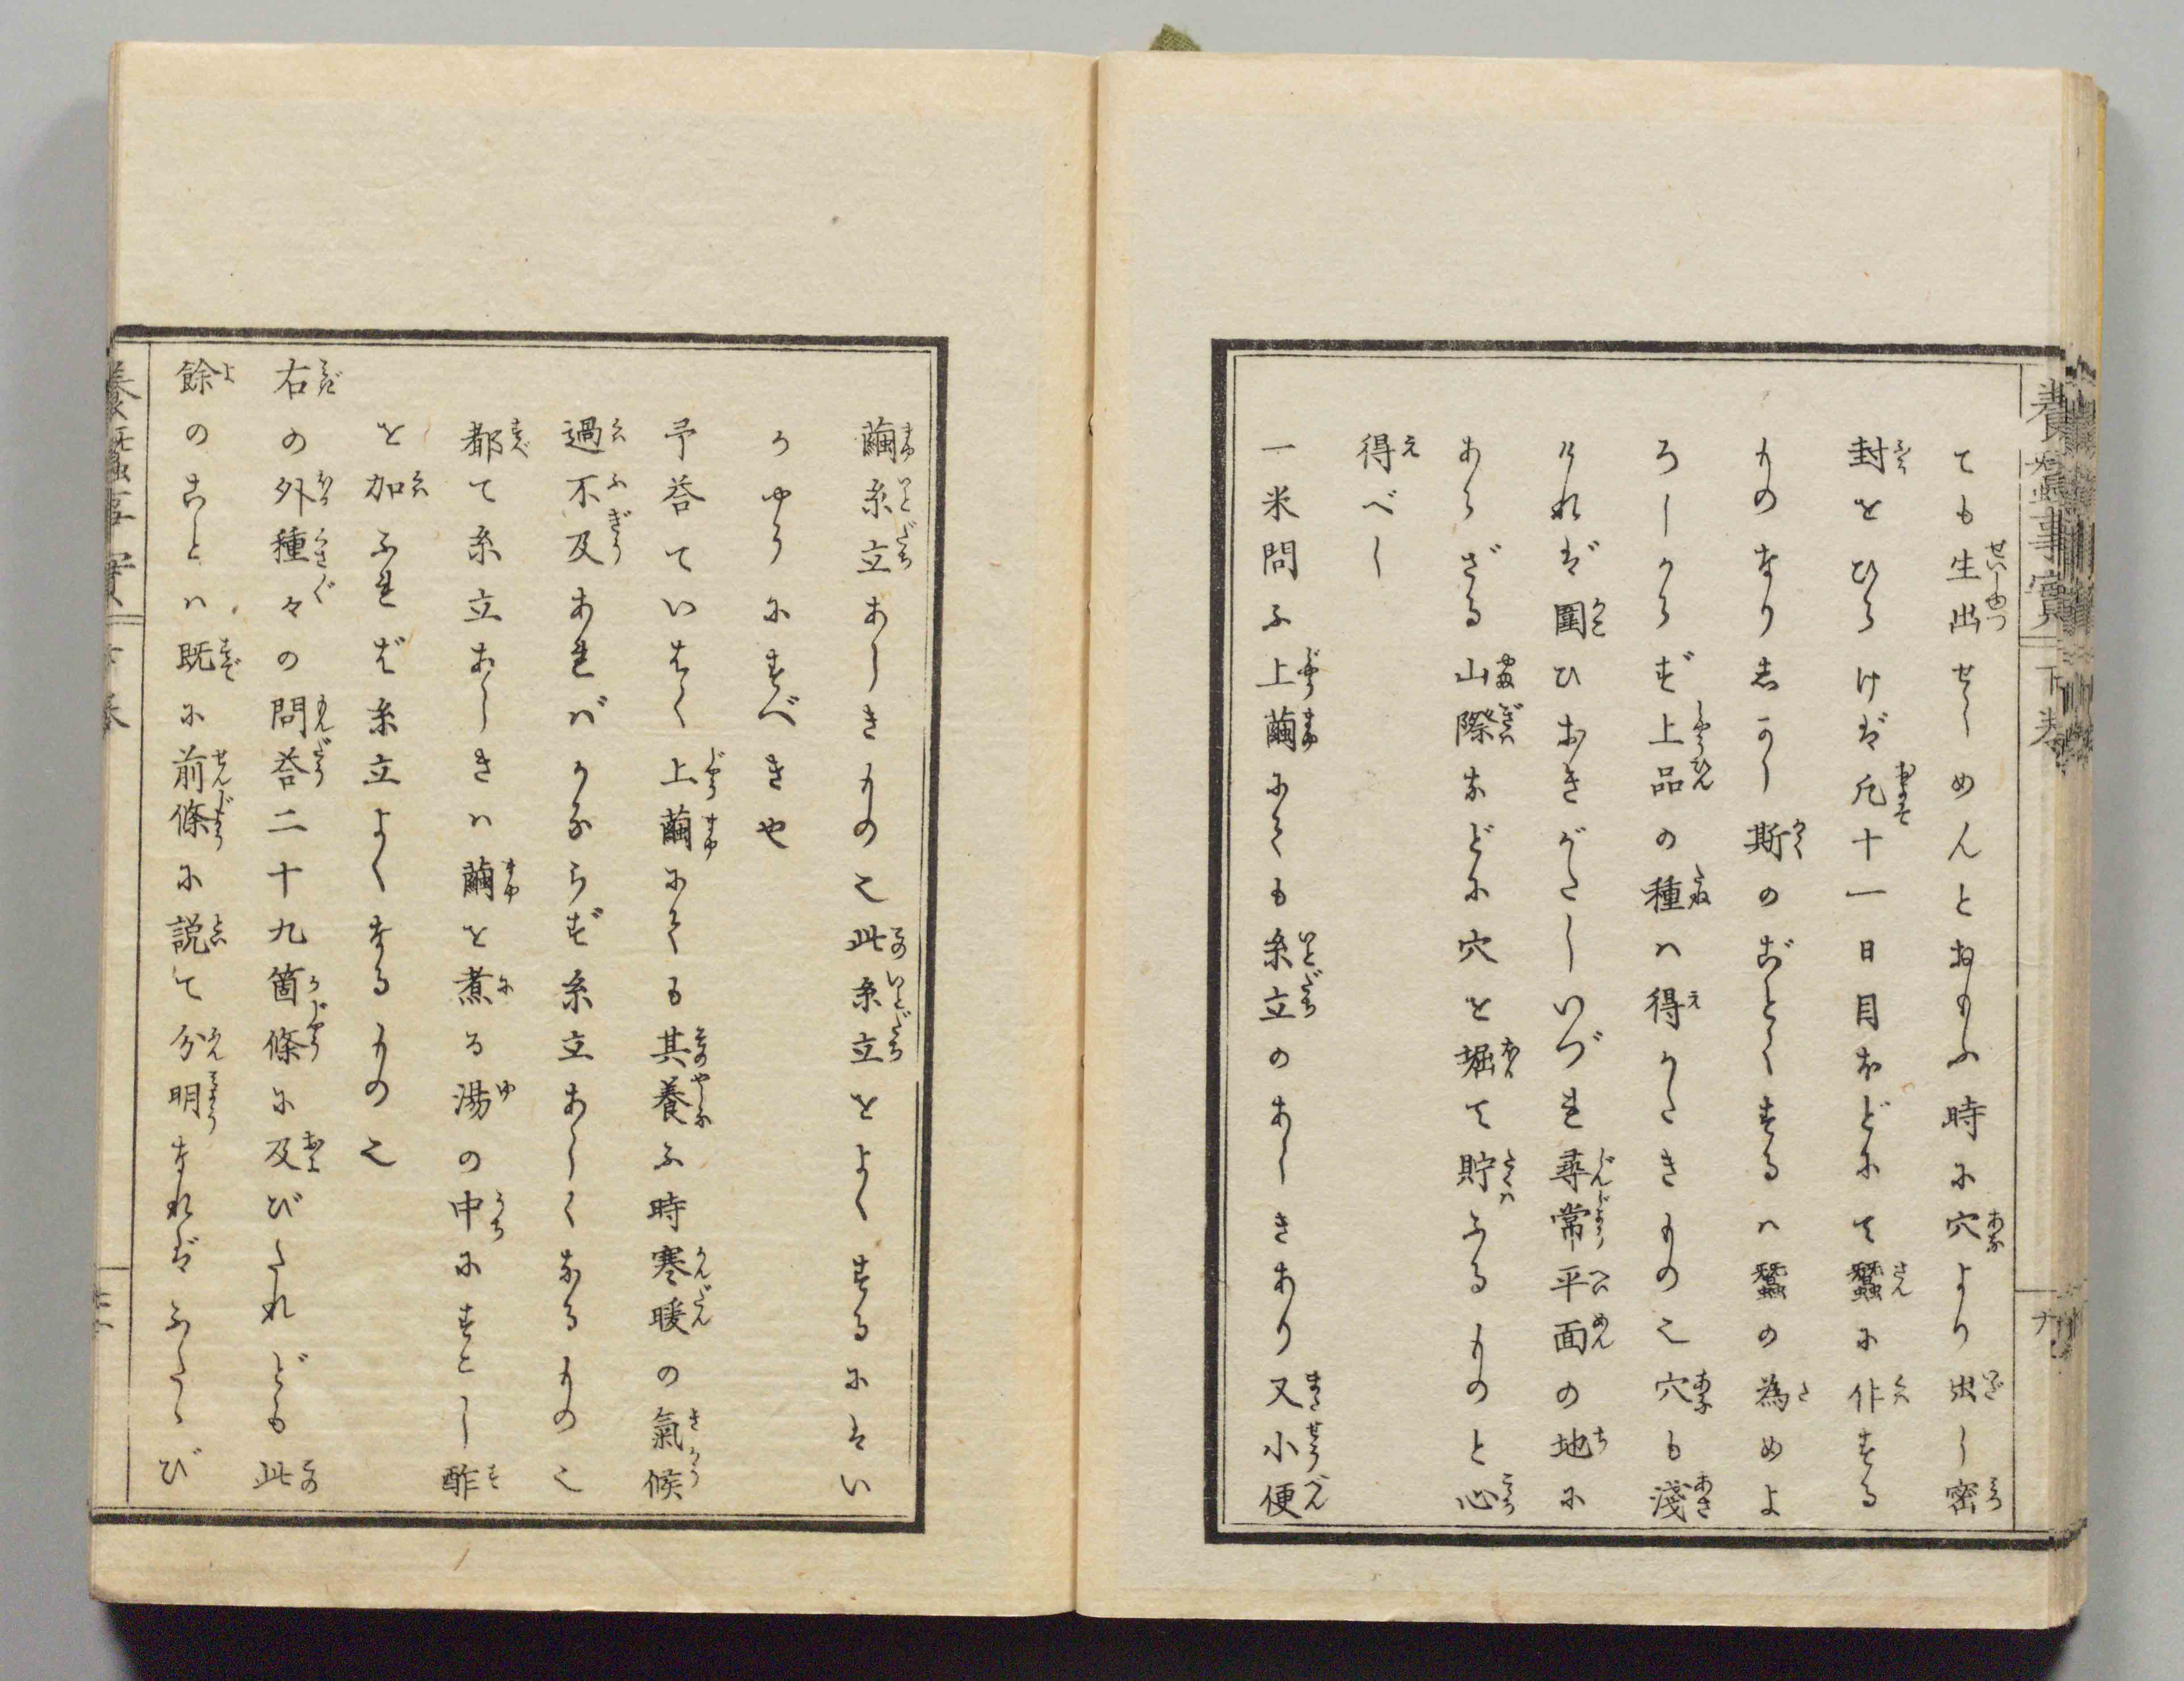 養蠶事實 下巻
ても生出せしめんとおもふ時に穴より出し密
封をひらけば凡十一日目ほどにて蠶に作する
ものなり志かし斯のごとくするハ蠶の為めよ
ろしからず上品の種ハ得がたきもの也穴も淺
けれバ圍ひおきがたしいづれ尋常平面の地に
あらざる山際などに穴を堀て貯ふるものと心
得べし
一米問ふ上繭にても糸立のあしきあり又小便
繭糸立あしきもの也此糸立をよくするにはい
かゆうにすべきや
予答ていはく上繭にても其養ふ時寒暖の氣候
過不及あれバかならず糸立あしくなるもの也
都て糸立あしきハ繭を煮る湯の中にすこし酢
を加ふれば糸立よくなるもの也
右の外種々の問答二十九箇條に及びたれども此
餘のことハ既に前條に説て分明なれバふたゝび
養蠶事實 下巻